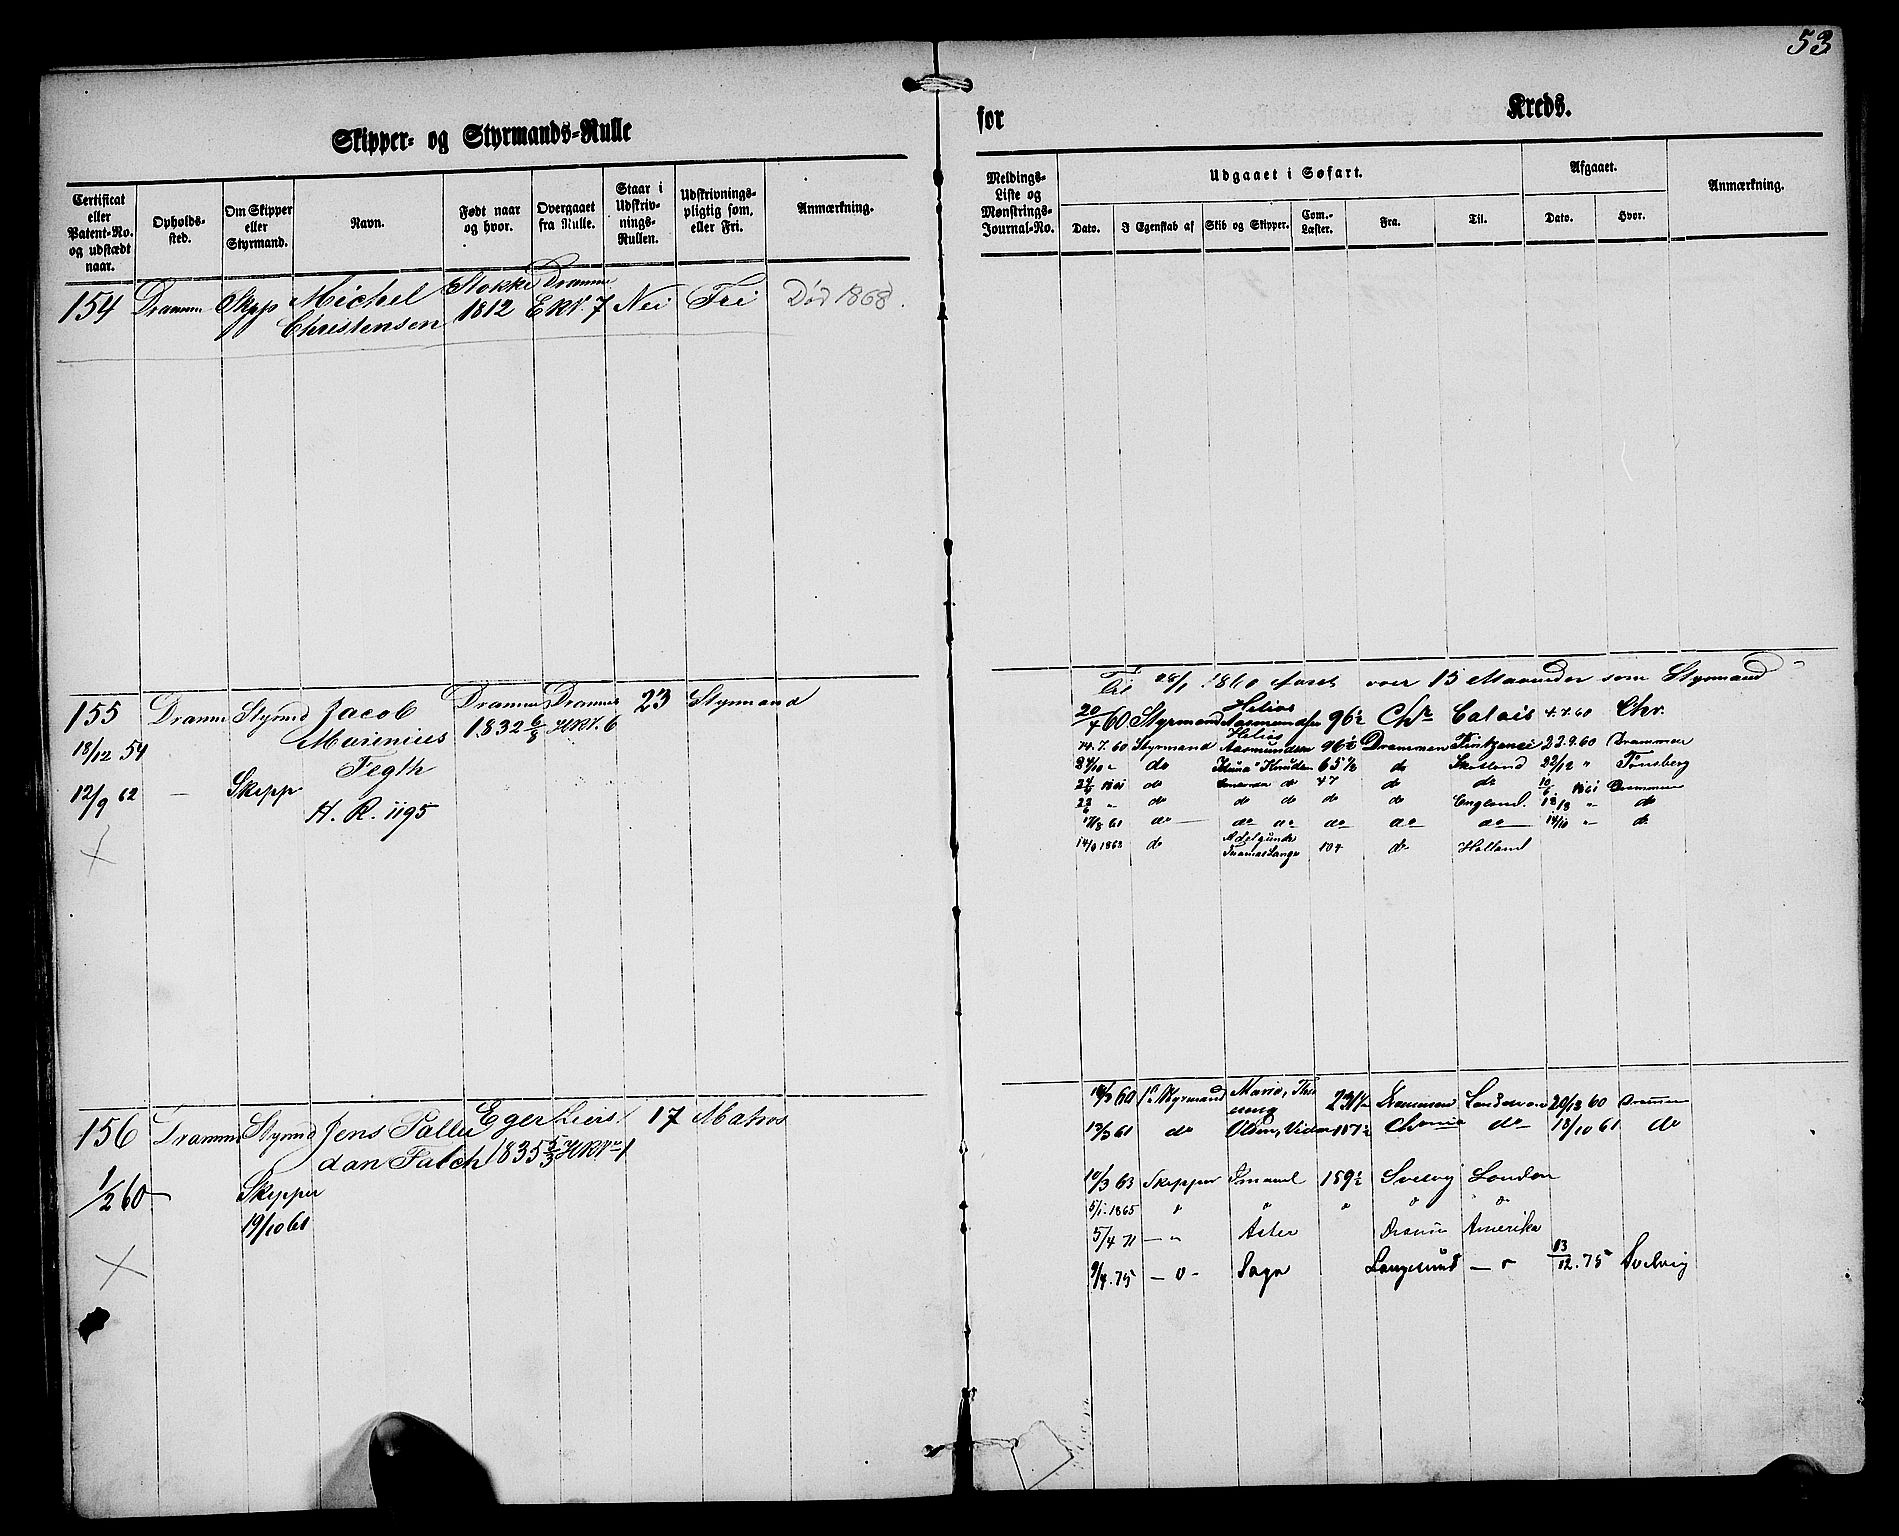 53
Skipper- og Styrmands-Rulle
for Kreds.
Certificat eller Patent-No. og udstædt naar.
Opholds-sted.
Om Skipper eller Styrmand.
Navn.
Født naar og hvor.
Overgaaet fra Rulle.
Staar i Udskriv-nings-Rullen.
Udskrivnings-pligtig som, eller Fri.
Anmærkning.
Meldings-Liste og Mønstrings-Journal-No.
Udgaaet i Søfart.
Dato.
I Egenskab af
Skib og Skipper.
Com.-Læster.
Fra.
Til.
Afgaaet.
Dato.
Hvor.
Anmærkning.
154 Dramm Skpp Michel Stokke Dramm Nei Fri Død 1868.
Christensen 1812 7
155 Dramm Styrmd Jacob Dramm Dramm 23 Styrmand
18/12 54 Marinius 1832 6/8 6
Fegth
12/9 62 — Skipp
H. R. 1195
Til 28/1 1860 faret over 15 Maaneder som Styrmand
20/4 60 Styrmand Helios 96½ Chr Calais 4.7.60 Chr.
14.7.60 Styrmand Helios Aasmundsen 96½ Drammen 23.9.60 Drammen
24/10 " do Knudsen 65½ do Skotland 22/12 " Tønsberg
1861 do do 47 do do 1861 Drammen
" do do do do do England 13/8 " do
17/8 61 do — do do do do do — 14/10 " do
1863 do Adelgunde 104 do Holland
156 Dramm Styrmd Jens Palu 17 Matros
dan Falch Eger 1835 5/3
1/2 60 — Skipper
19/10 61
60 1ste Styrmand Maria, 231½ Drammen 20/12 60 Drammen
13/3 61 do 187½ Chania do 18/10 61 do
10/3 63 Skipper 159½ Svelvig London
5/1 1865 " " " " "
5/4 71 — " Aster Amerika
9/4.75 — " — Saga Langesund — " 13/12.75 Svelvig